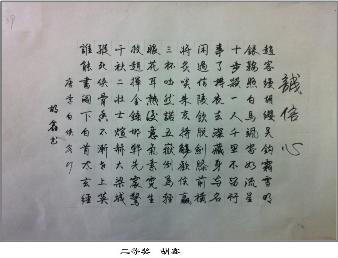 誠信心
趙客縵胡纓吳鉤霜雪明
銀鞍照白馬颯沓如流星
十步殺一人千里不留行
事了拂衣去深藏身與名
閑過信陵飲脫劍膝前橫
將炙啖朱亥持觴勸侯嬴
三杯吐然諾五嶽倒為輕
眼花耳熱後意氣素霓生
救趙揮金錘邯鄲先震驚
千秋二壯士煊赫大梁城
縱死俠骨香不慚世上英
誰能書閣下白首太玄經
唐李白俠客行
二等奖 胡鑫